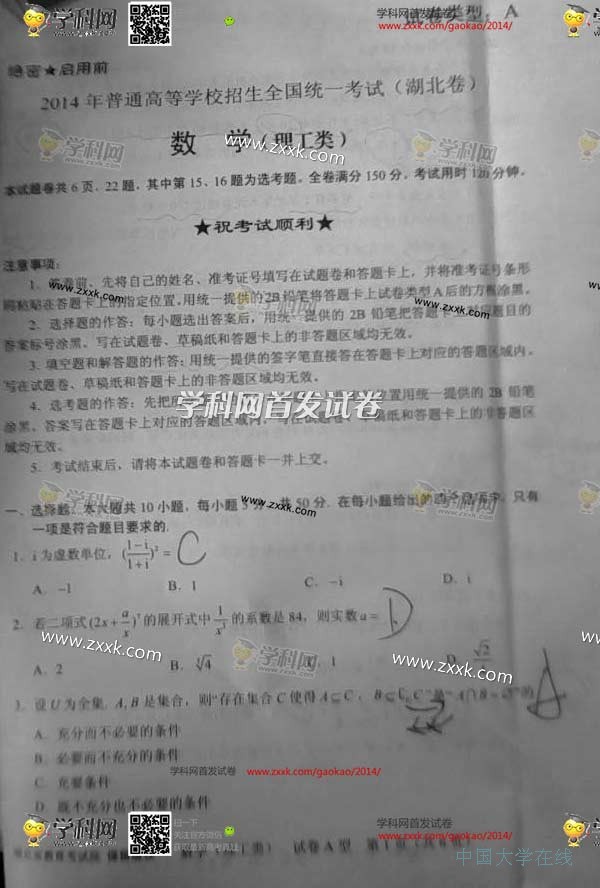 学科网
www.zxxk.com
学科网首发试卷
www.zxxk.com/gaokao/2014/
学科网
www.zxxk.com
试卷类型：A
绝密★启用前
2014 年普通高等学校招生全国统一考试（湖北卷）
数 学（理工类）
学科网
www.zxxk.com
学科网
www.zxxk.com
本试题卷共 6 页，22 题，其中第 15、16 题为选考题。全卷满分 150 分。考试用时 120 分钟。
★祝考试顺利★
注意事项：
先将自己的姓名、准考证号填写在试题卷和答题卡上，并将准考证号条形
码粘贴在答题卡上的指定位置。用统一提供的2B铅笔将答题卡上试卷类型A后的方框涂黑。
2. 选择题的作答：每小题选出答案后，用统一提供的 2B 铅笔把答题卡上对应题目的
答案标号涂黑。写在试题卷、草稿纸和答题卡上的非答题区域均无效。
3. 填空题和解答题的作答：用统一提供的签字笔直接答在答题卡上对应的答题区域内。
写在试题卷、草稿纸和答题卡上的非答题区域均无效。
4. 选考题的作答：先把 位置用统一提供的 2B 铅笔
学科网首发试卷
涂黑。答案写在答题卡上对应的答题区域内，写在试题卷、草稿纸和答题卡上的非答题区
域均无效。
5. 考试结束后，请将本试题卷和答题卡一并上交。
一、选择题：本大题共 10 小题，每小题 5 分，共 50 分. 在每小题给出的四个选项中，只有
一项是符合题目要求的.
1. i 为虚数单位，((1−i)/(1+i))² = C
A. −1 B. 1 C. −i D. i
2. 若二项式(2x + a/x)⁷ 的展开式中 1/x³ 的系数是 84，则实数 a = D
A. 2 B. ⁵√4 C. 1 D. √2/4
www.zxxk.com
学科网
www.zxxk.com
www.zxxk.com
3. 设 U 为全集. A, B 是集合，则“存在集合 C 使得 A⊆C， B⊆∁ C”是“A∩B=∅”的 A
A. 充分而不必要的条件
B. 必要而不充分的条件
C. 充要条件
D. 既不充分也不必要的条件
学科网首发试卷
www.zxxk.com/gaokao/2014/
扫一扫
关注官方微信
获取最新高考真题
学科网
www.zxxk.com
学科网首发试卷
www.zxxk.com/gaokao/2014/
学科网
www.zxxk.com
试卷A型
中国大学在线